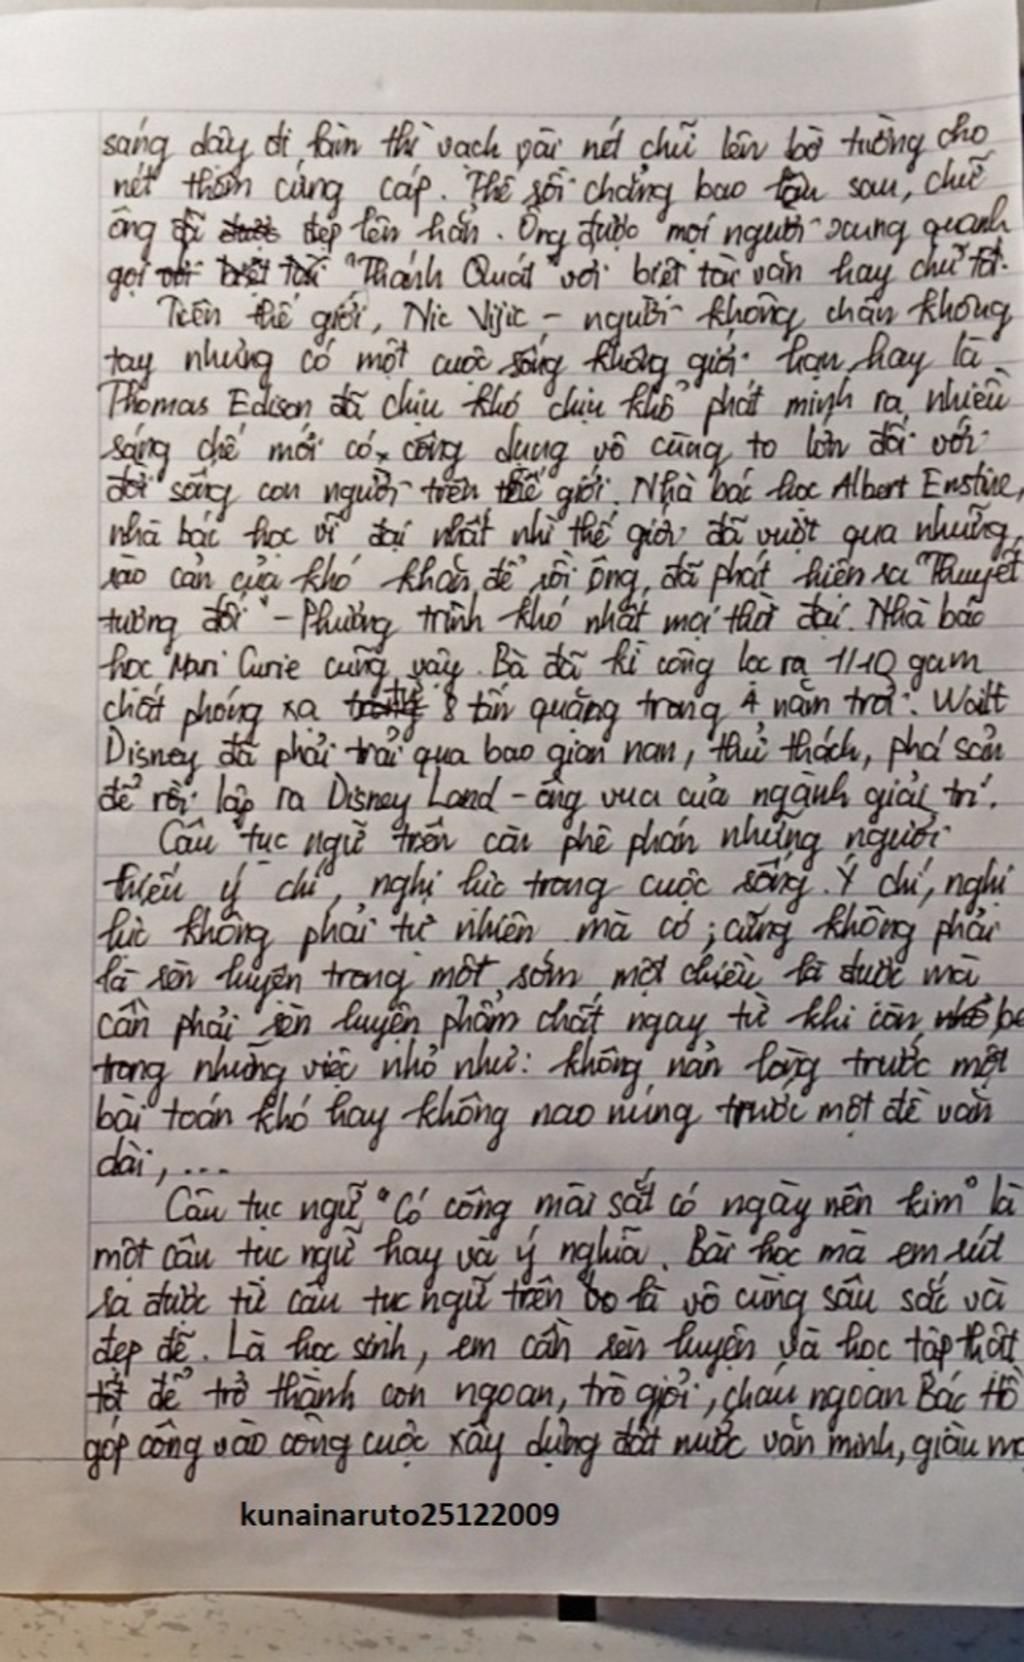 sáng dậy đi lần thì vạch vài nét chữ lên bờ tường cho
nét thêm cứng cáp. Thế rồi chẳng bao lâu sau, chữ
ông đã đẹp lên hẳn. Ông được mọi người xung quanh
gọi "Thánh Quát" với biệt tài văn hay chữ tốt.
Trên thế giới, Nic Vijic - người không chân không
tay nhưng có một cuộc sống không giới hạn hay là
Thomas Edison đã chịu khó chịu khổ phát minh ra nhiều
sáng chế mới có công dụng vô cùng to lớn đối với
đời sống con người trên thế giới. Nhà bác học Albert Enstine,
nhà bác học vĩ đại nhất nhì thế giới đã vượt qua những
rào cản của khó khăn để rồi ông đã phát hiện ra "Thuyết
tương đối" - Phương trình khó nhất mọi thời đại. Nhà bác
học Mari Curie cũng vậy. Bà đã kì công lọc ra 1/10 gam
chất phóng xạ từ 8 tấn quặng trong 4 năm trời. Wailt
Disney đã phải trải qua bao gian nan, thử thách, phá sản
để rồi lập ra Disney Land - ông vua của ngành giải trí.
Câu tục ngữ trên còn phê phán những người
thiếu ý chí, nghị lực trong cuộc sống. Ý chí, nghị
lực không phải tự nhiên mà có; cũng không phải
là rèn luyện trong một sớm một chiều là được mà
cần phải rèn luyện phẩm chất ngay từ khi còn bé
trong những việc nhỏ như: không nản lòng trước một
bài toán khó hay không nao núng trước một đề văn
dài,...
Câu tục ngữ "Có công mài sắt có ngày nên kim" là
một câu tục ngữ hay và ý nghĩa. Bài học mà em rút
ra được từ câu tục ngữ trên là vô cùng sâu sắc và
đẹp đẽ. Là học sinh, em cần rèn luyện và học tập thật
tốt để trở thành con ngoan, trò giỏi, cháu ngoan Bác Hồ
góp công vào công cuộc xây dựng đất nước văn minh, giàu
kunainaruto25122009